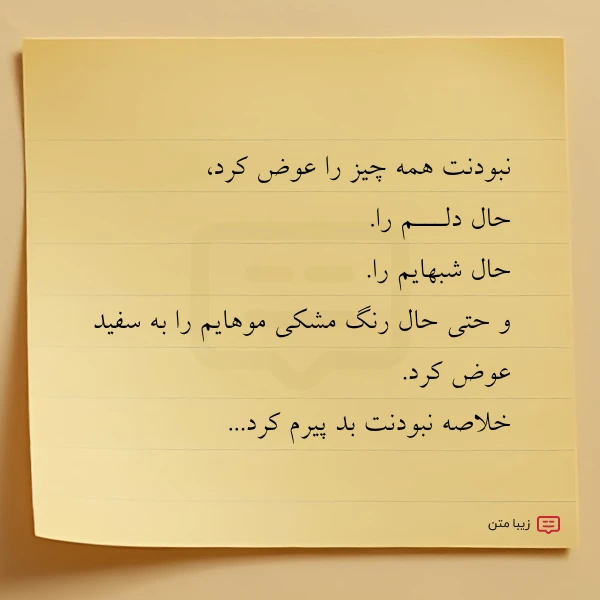 نبودنت همه چیز را عوض کرد،
حال دلـــــم را.
حال شبهایم را.
و حتی حال رنگ مشکی موهایم را به سفید
عوض کرد.
خلاصه نبودنت بد پیرم کرد...
زیبا متن